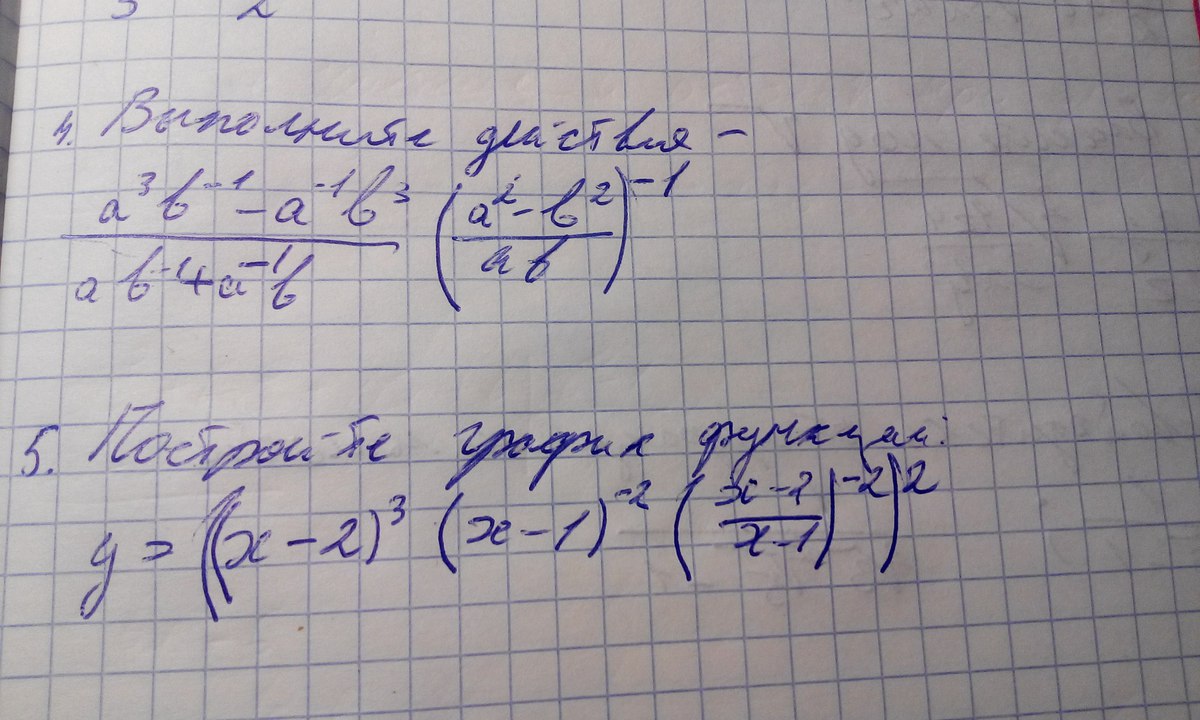 4. Выполните действия -
(a³b⁻¹ - a⁻¹b³)/(ab⁻¹ + a⁻¹b) ((a² - b²)/(ab))⁻¹
5. Постройте график функции:
y = ((x - 2)³ (x - 1)⁻² ((x - 2)/(x - 1))⁻²)²